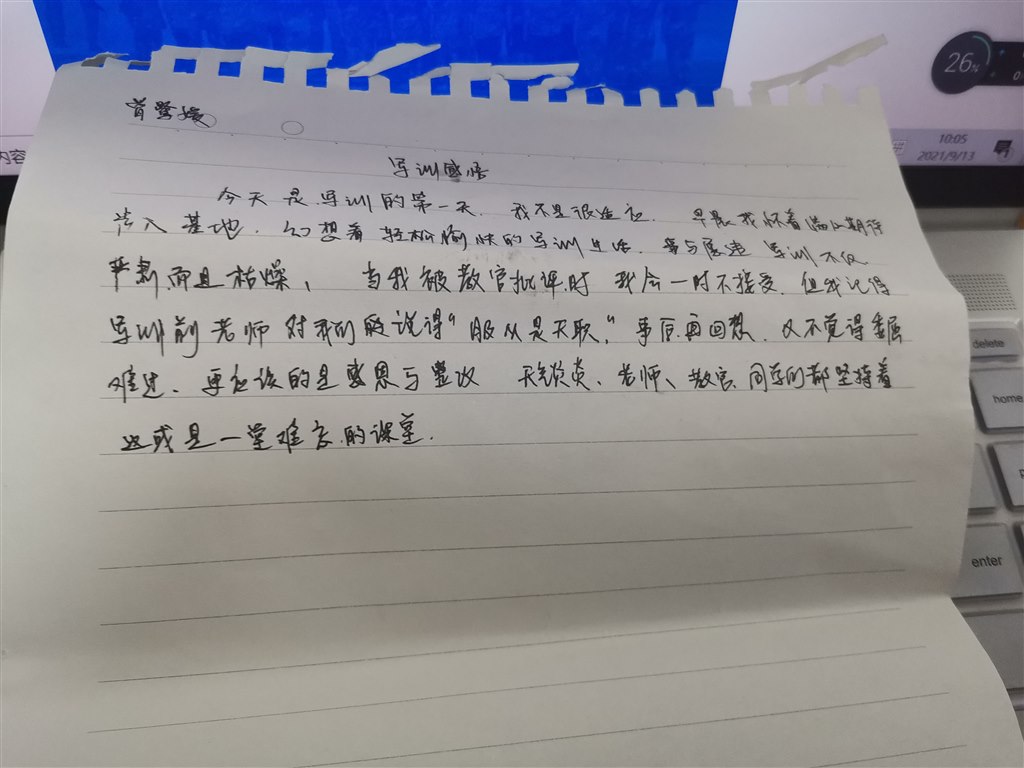 26%
10:05
2021/9/13
内容
军训感悟
今天是军训的第一天,我不是很适应,早晨我怀着满心期待
进入基地,幻想着轻松愉快的军训生活,事与愿违,军训不仅
严肃而且枯燥,当我被教官批评时我会一时不接受,但我记得
军训前老师对我们说得“服从是天职,”事后再回想,又不觉得委屈
难过,更应该的是感恩与整改 天气炎炎,老师、教官、同学们都坚持着
这或是一堂难忘的课堂.
delete
home
enter